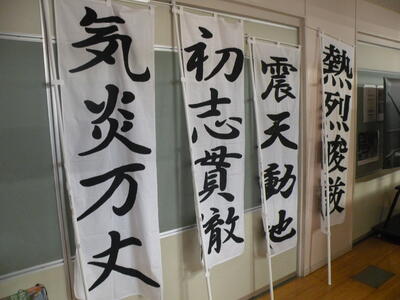 気炎万丈
初志貫徹
震天動地
熱烈峻厳